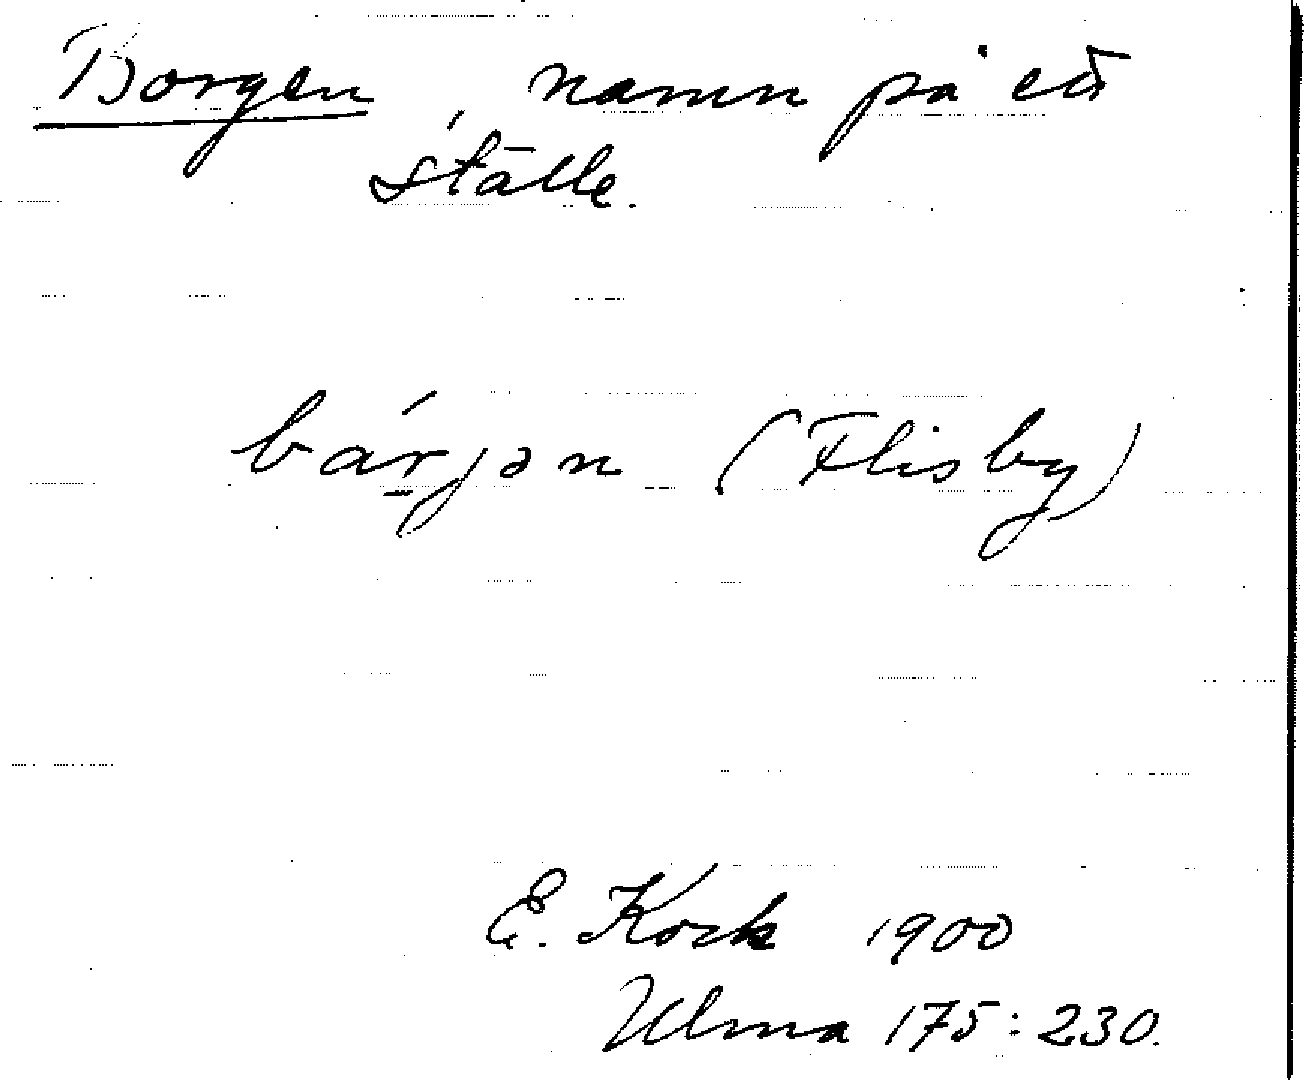 Borgen, namn på ett
ställe.
bárjən (Flisby)
E. Kock 1900
Ulma 175:230.